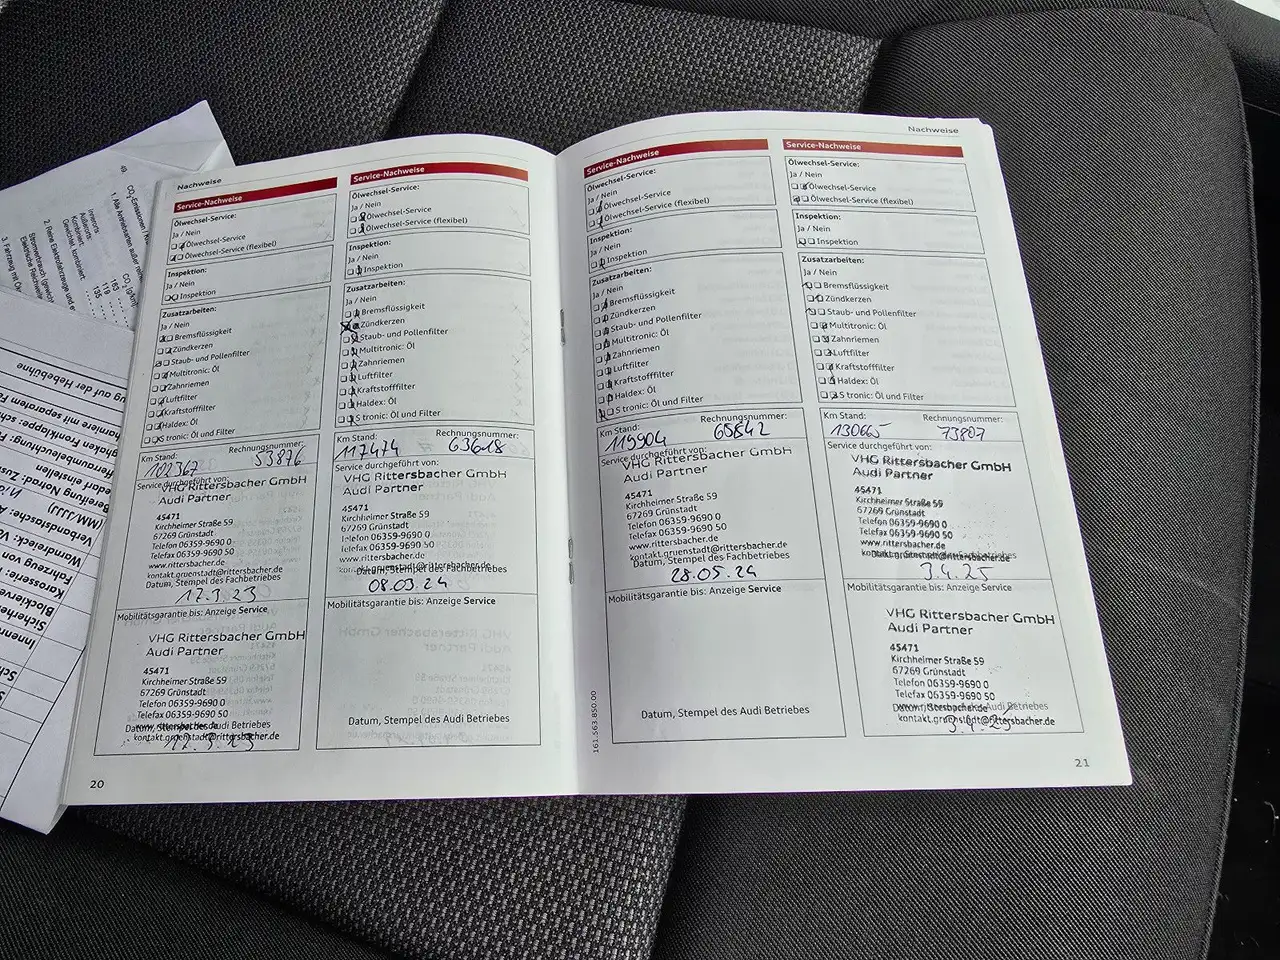 Nachweise
Service-Nachweise
Ölwechsel-Service:
Ja / Nein
Ölwechsel-Service
Ölwechsel-Service (flexibel)
Inspektion:
Ja / Nein
Inspektion
Zusatzarbeiten:
Ja / Nein
Bremsflüssigkeit
Zündkerzen
Staub- und Pollenfilter
Multitronic: Öl
Zahnriemen
Luftfilter
Kraftstofffilter
Haldex: Öl
S tronic: Öl und Filter
Km Stand: Rechnungsnummer:
102367 53876
Service durchgeführt von:
VHG Rittersbacher GmbH
Audi Partner
45471
Kirchheimer Straße 59
67269 Grünstadt
Telefon 06359-9690 0
Telefax 06359-9690 50
www.rittersbacher.de
kontakt.gruenstadt@rittersbacher.de
Datum, Stempel des Fachbetriebes
17.3.23
Mobilitätsgarantie bis: Anzeige Service
VHG Rittersbacher GmbH
Audi Partner
45471
Kirchheimer Straße 59
67269 Grünstadt
Telefon 06359-9690 0
Telefax 06359-9690 50
www.rittersbacher.de
Datum, Stempel des Audi Betriebes
kontakt.gruenstadt@rittersbacher.de
17.3.23
20
Service-Nachweise
Ölwechsel-Service:
Ja / Nein
Ölwechsel-Service
Ölwechsel-Service (flexibel)
Inspektion:
Ja / Nein
Inspektion
Zusatzarbeiten:
Ja / Nein
Bremsflüssigkeit
Zündkerzen
Staub- und Pollenfilter
Multitronic: Öl
Zahnriemen
Luftfilter
Kraftstofffilter
Haldex: Öl
S tronic: Öl und Filter
Km Stand: Rechnungsnummer:
117474 63618
Service durchgeführt von:
VHG Rittersbacher GmbH
Audi Partner
45471
Kirchheimer Straße 59
67269 Grünstadt
Telefon 06359-9690 0
Telefax 06359-9690 50
www.rittersbacher.de
kontakt.gruenstadt@rittersbacher.de
Datum, Stempel des Fachbetriebes
08.03.24
Mobilitätsgarantie bis: Anzeige Service
Datum, Stempel des Audi Betriebes
Service-Nachweise
Ölwechsel-Service:
Ja / Nein
Ölwechsel-Service
Ölwechsel-Service (flexibel)
Inspektion:
Ja / Nein
Inspektion
Zusatzarbeiten:
Ja / Nein
Bremsflüssigkeit
Zündkerzen
Staub- und Pollenfilter
Multitronic: Öl
Zahnriemen
Luftfilter
Kraftstofffilter
Haldex: Öl
S tronic: Öl und Filter
Km Stand: Rechnungsnummer:
119904 65842
Service durchgeführt von:
VHG Rittersbacher GmbH
Audi Partner
45471
Kirchheimer Straße 59
67269 Grünstadt
Telefon 06359-9690 0
Telefax 06359-9690 50
www.rittersbacher.de
kontakt.gruenstadt@rittersbacher.de
Datum, Stempel des Fachbetriebes
28.05.24
Mobilitätsgarantie bis: Anzeige Service
Datum, Stempel des Audi Betriebes
161.563.850.00
Nachweise
Service-Nachweise
Ölwechsel-Service:
Ja / Nein
Ölwechsel-Service
Ölwechsel-Service (flexibel)
Inspektion:
Ja / Nein
Inspektion
Zusatzarbeiten:
Ja / Nein
Bremsflüssigkeit
Zündkerzen
Staub- und Pollenfilter
Multitronic: Öl
Zahnriemen
Luftfilter
Kraftstofffilter
Haldex: Öl
S tronic: Öl und Filter
Km Stand: Rechnungsnummer:
130665 73807
Service durchgeführt von:
VHG Rittersbacher GmbH
Audi Partner
45471
Kirchheimer Straße 59
67269 Grünstadt
Telefon 06359-9690 0
Telefax 06359-9690 50
www.rittersbacher.de
kontakt.gruenstadt@rittersbacher.de
3.4.25
Mobilitätsgarantie bis: Anzeige Service
VHG Rittersbacher GmbH
Audi Partner
45471
Kirchheimer Straße 59
67269 Grünstadt
Telefon 06359-9690 0
Telefax 06359-9690 50
www.rittersbacher.de
kontakt.gruenstadt@rittersbacher.de
3.4.25
21